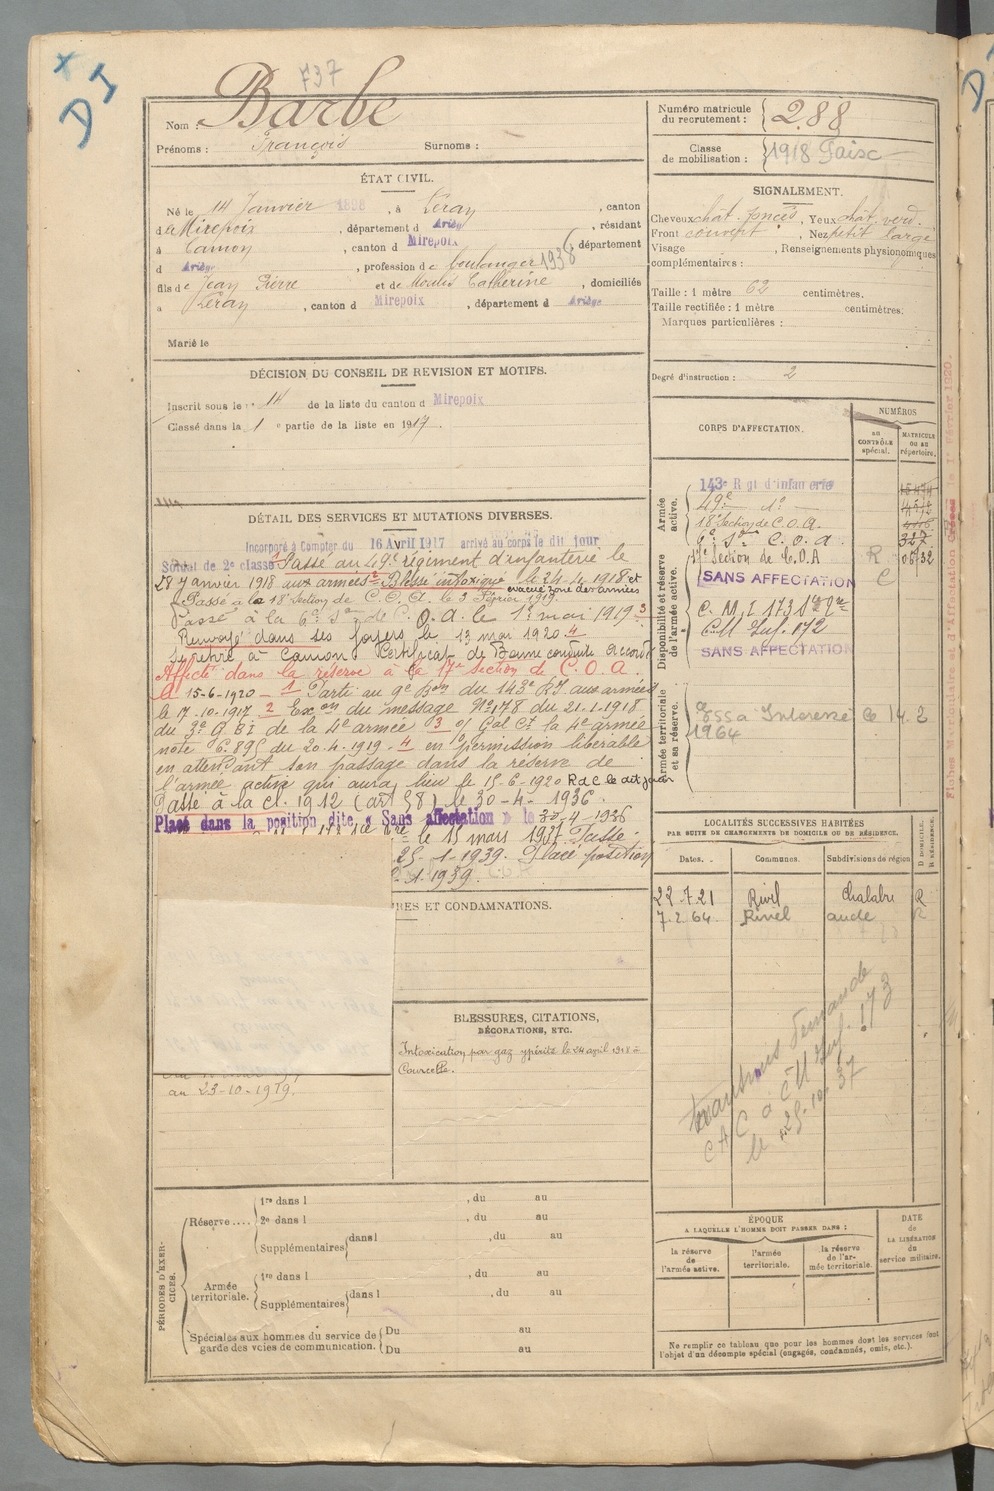 D I
F37
Nom : Barbe
Prénoms : François Surnoms :
Numéro matricule du recrutement : 288
Classe de mobilisation : 1918
ÉTAT CIVIL.
Né le 14 Janvier 1898, à Léran, canton
de Mirepoix, département d Ariège, résidant
à Camon, canton d Mirepoix, département
d Ariège, profession de boulanger 1938
fils de Jean Pierre et de Moulis Catherine, domiciliés
à Léran, canton d Mirepoix, département d Ariège
Marié le
SIGNALEMENT.
Cheveux chat. foncés, Yeux chat. verd.
Front couvert, Nez petit large
Visage , Renseignements physionomiques
complémentaires :
Taille : 1 mètre 62 centimètres.
Taille rectifiée : 1 mètre centimètres.
Marques particulières :
Degré d'instruction : 2
DÉCISION DU CONSEIL DE REVISION ET MOTIFS.
Inscrit sous le n° 14 de la liste du canton d Mirepoix
Classé dans la 1 e partie de la liste en 1917.
DÉTAIL DES SERVICES ET MUTATIONS DIVERSES.
Incorporé à Compter du 16 Avril 1917 arrivé au corps le dit jour
Soldat de 2e classe Passé au 49e régiment d'infanterie le
28 Janvier 1918 aux armées Blessé intoxiqué le 24-4-1918 et
évacué zone des armées
Passé à la 18e Section de C.O.A. le 3 Février 1919.
Passé à la 6e Son de C.O.A. le 1er mai 1919. 3
Renvoyé dans ses foyers le 13 mai 1920. 4
Se retire à Camon Certificat de Bonne conduite Accordé
Affecté dans la réserve à la 17e section de C.O.A.
Le 15-6-1920 - 1 Parti au 9e Bon du 143e RI aux armées
le 17-10-1917 2 Exon du message No 178 du 21-1-1918
du 3e G. BI de la 4e armée 3 o/ Gal Ct la 4e armée
note 6.895 du 20-4-1919 - 4 en permission libérable
en attendant son passage dans la réserve de
l'armée active qui aura lieu le 15-6-1920 RdC le dit jour
Passé à la cl. 1912 (art 58) le 30-4-1936.
Placé dans la position dite « Sans affectation » le 30-4-1936
le 15 mars 1937 Passé
25-1-1939. Placé position
1-1939.
CORPS D'AFFECTATION.
NUMÉROS
au CONTRÔLE spécial.
MATRICULE ou au répertoire.
Armée active.
143e Rgt d'infanterie
49e do
18e Section de C.O.A. 4816
6e Son C.O.A. 327
Disponibilité et réserve de l'armée active.
17e Section de C.O.A R 06132
SANS AFFECTATION C
C.M.I 173
C.M Inf. 172
SANS AFFECTATION
Armée territoriale et sa réserve.
1964
LOCALITÉS SUCCESSIVES HABITÉES
PAR SUITE DE CHANGEMENTS DE DOMICILE OU DE RÉSIDENCE.
Dates. Communes. Subdivisions de région D DOMICILE. R RÉSIDENCE.
22.7.21 Rivel Chalabre R
7.2.64 Rivel aude R
Demande
CAC à CM Inf. 173
le 25-10-37
RES ET CONDAMNATIONS.
BLESSURES, CITATIONS,
DÉCORATIONS, ETC.
Intoxication par gaz ypérite le 24 avril 1918 à
Courcelle.
au 23-10-1919.
PÉRIODES D'EXERCICES.
Réserve....
1re dans l , du au
2e dans l , du au
Supplémentaires dans l , du au
Armée territoriale.
1re dans l , du au
Supplémentaires dans l , du au
Spéciales aux hommes du service de garde des voies de communication.
Du au
Du au
ÉPOQUE
A LAQUELLE L'HOMME DOIT PASSER DANS :
la réserve de l'armée active.
l'armée territoriale.
la réserve de l'armée territoriale.
DATE de LA LIBÉRATION du service militaire.
Ne remplir ce tableau que pour les hommes dont les services font
l'objet d'un décompte spécial (engagés, condamnés, omis, etc.).